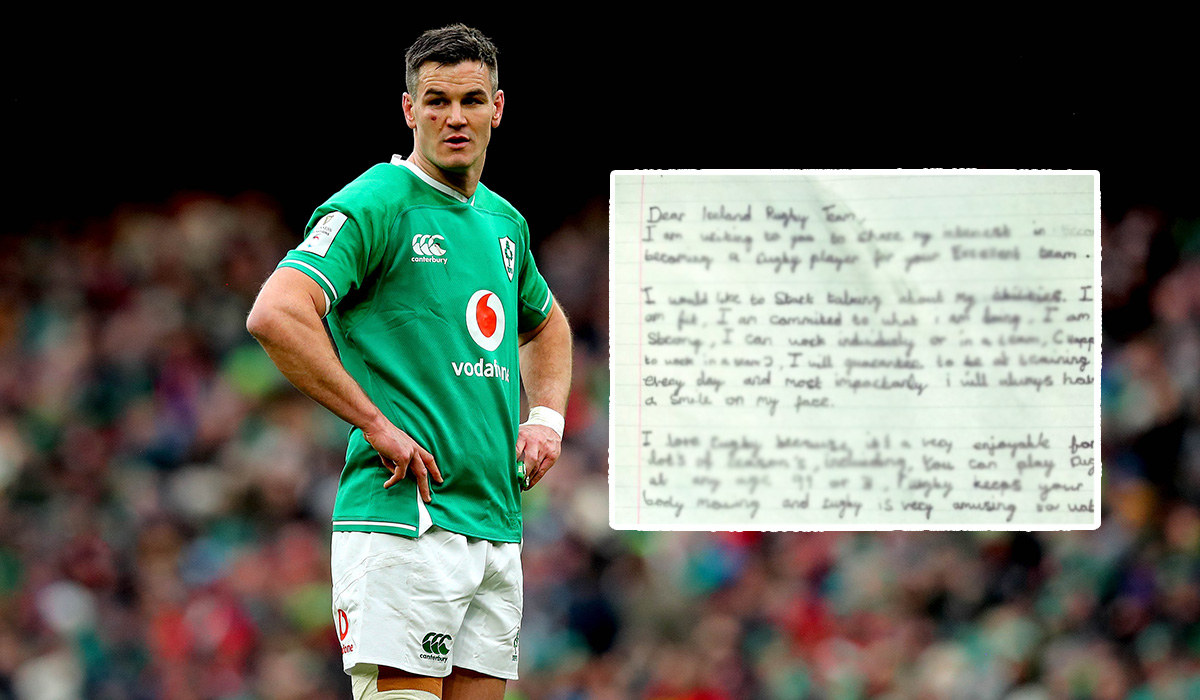 canterbury
vodafone
canterbury
Dear Iceland Rugby Team,
I am writing to you to share my interest in
becoming a rugby player for your Excellent team.
I would like to start talking about my abilities. I
am fit, I am commited to what i am doing, I am
Strong, I can work individualy or in a team,
to work in a team), I will guarantee to be at training
every day and most importantly i will always hav
a smile on my face.
I love rugby because it's a very enjoyable for
lots of reason's, including, You can play rug
at any age 99 or 3, Rugby keeps your
body moving and rugby is very amusing to wat